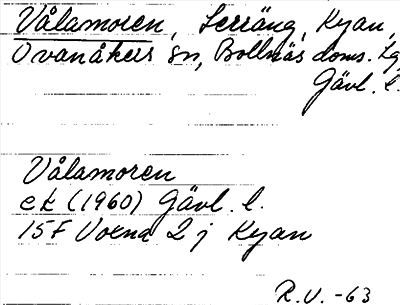 Vålamoren, Serräng, Kyan,
Ovanåkers sn, Bollnäs doms. lg,
Gävl. l.
Vålamoren
ek (1960) Gävl. l.
15F Voxna 2 j Kyan
R.V. -63